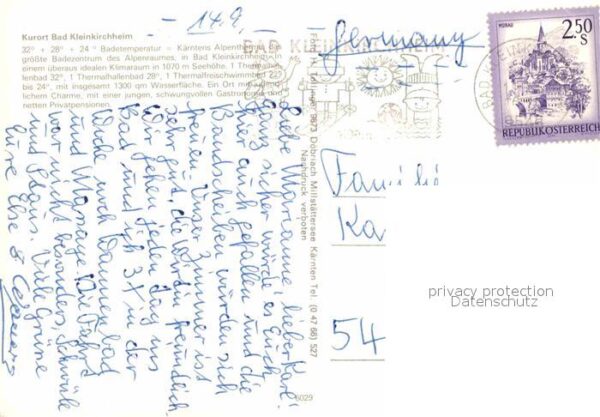 - 14.9. -
Germany
Kurort Bad Kleinkirchheim
32° + 28° + 24° Badetemperatur – Kärntens Alpentherme das
größte Badezentrum des Alpenraumes, in Bad Kleinkirchheim, in
einem überaus idealen Klimaraum in 1070 m Seehöhe. 1 Thermal
lenbad 32°, 1 Thermalhallenbad 28°, 1 Thermalfreischwimmbad 22
bis 24°, mit insgesamt 1300 qm Wasserfläche. Ein Ort mit
lichem Charme, mit einer jungen, schwungvollen Gastronomie und
netten Privatpensionen.
BAD KLEINKIRCHHEIM
MURAU
2.50
S
REPUBLIK ÖSTERREICH
Liebe Marianne, lieber Karl!
Also sicher würde es Euch
hier auch gefallen und die
Bandscheiben würden sich
freuen. Unser Zimmer ist
sehr gut, die Wirtin freundlich
Wir gehen jeden Tag ins
Bad und sich 3 X in der
Woche noch Wannenbad
und Massage. Die Fahrt
war nicht besonders, Schwüle
und Staus. Viele Grüße
Eure Else &
9873 Döbriach Millstättersee Kärnten Tel. (0 47 66) 527
Nachdruck verboten
6029
Famili
Ka
54
privacy protection
Datenschutz